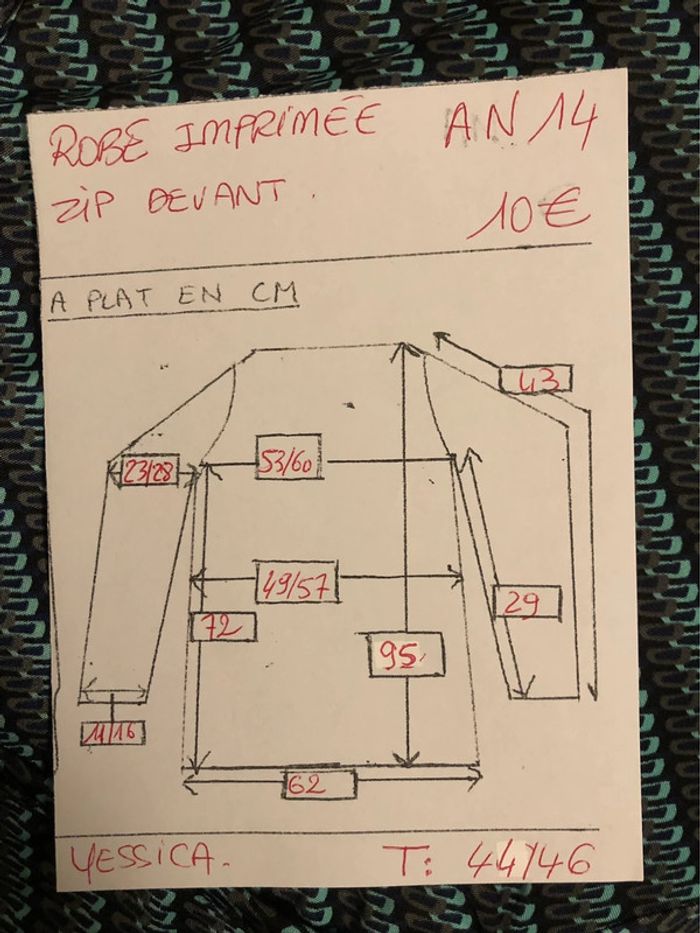 ROBE IMPRIMÉE AN 14
ZIP DEVANT. 10€
A PLAT EN CM
43
23/28 53/60
49/57
29
72
95.
11/16
62
YESSICA. T: 44/46